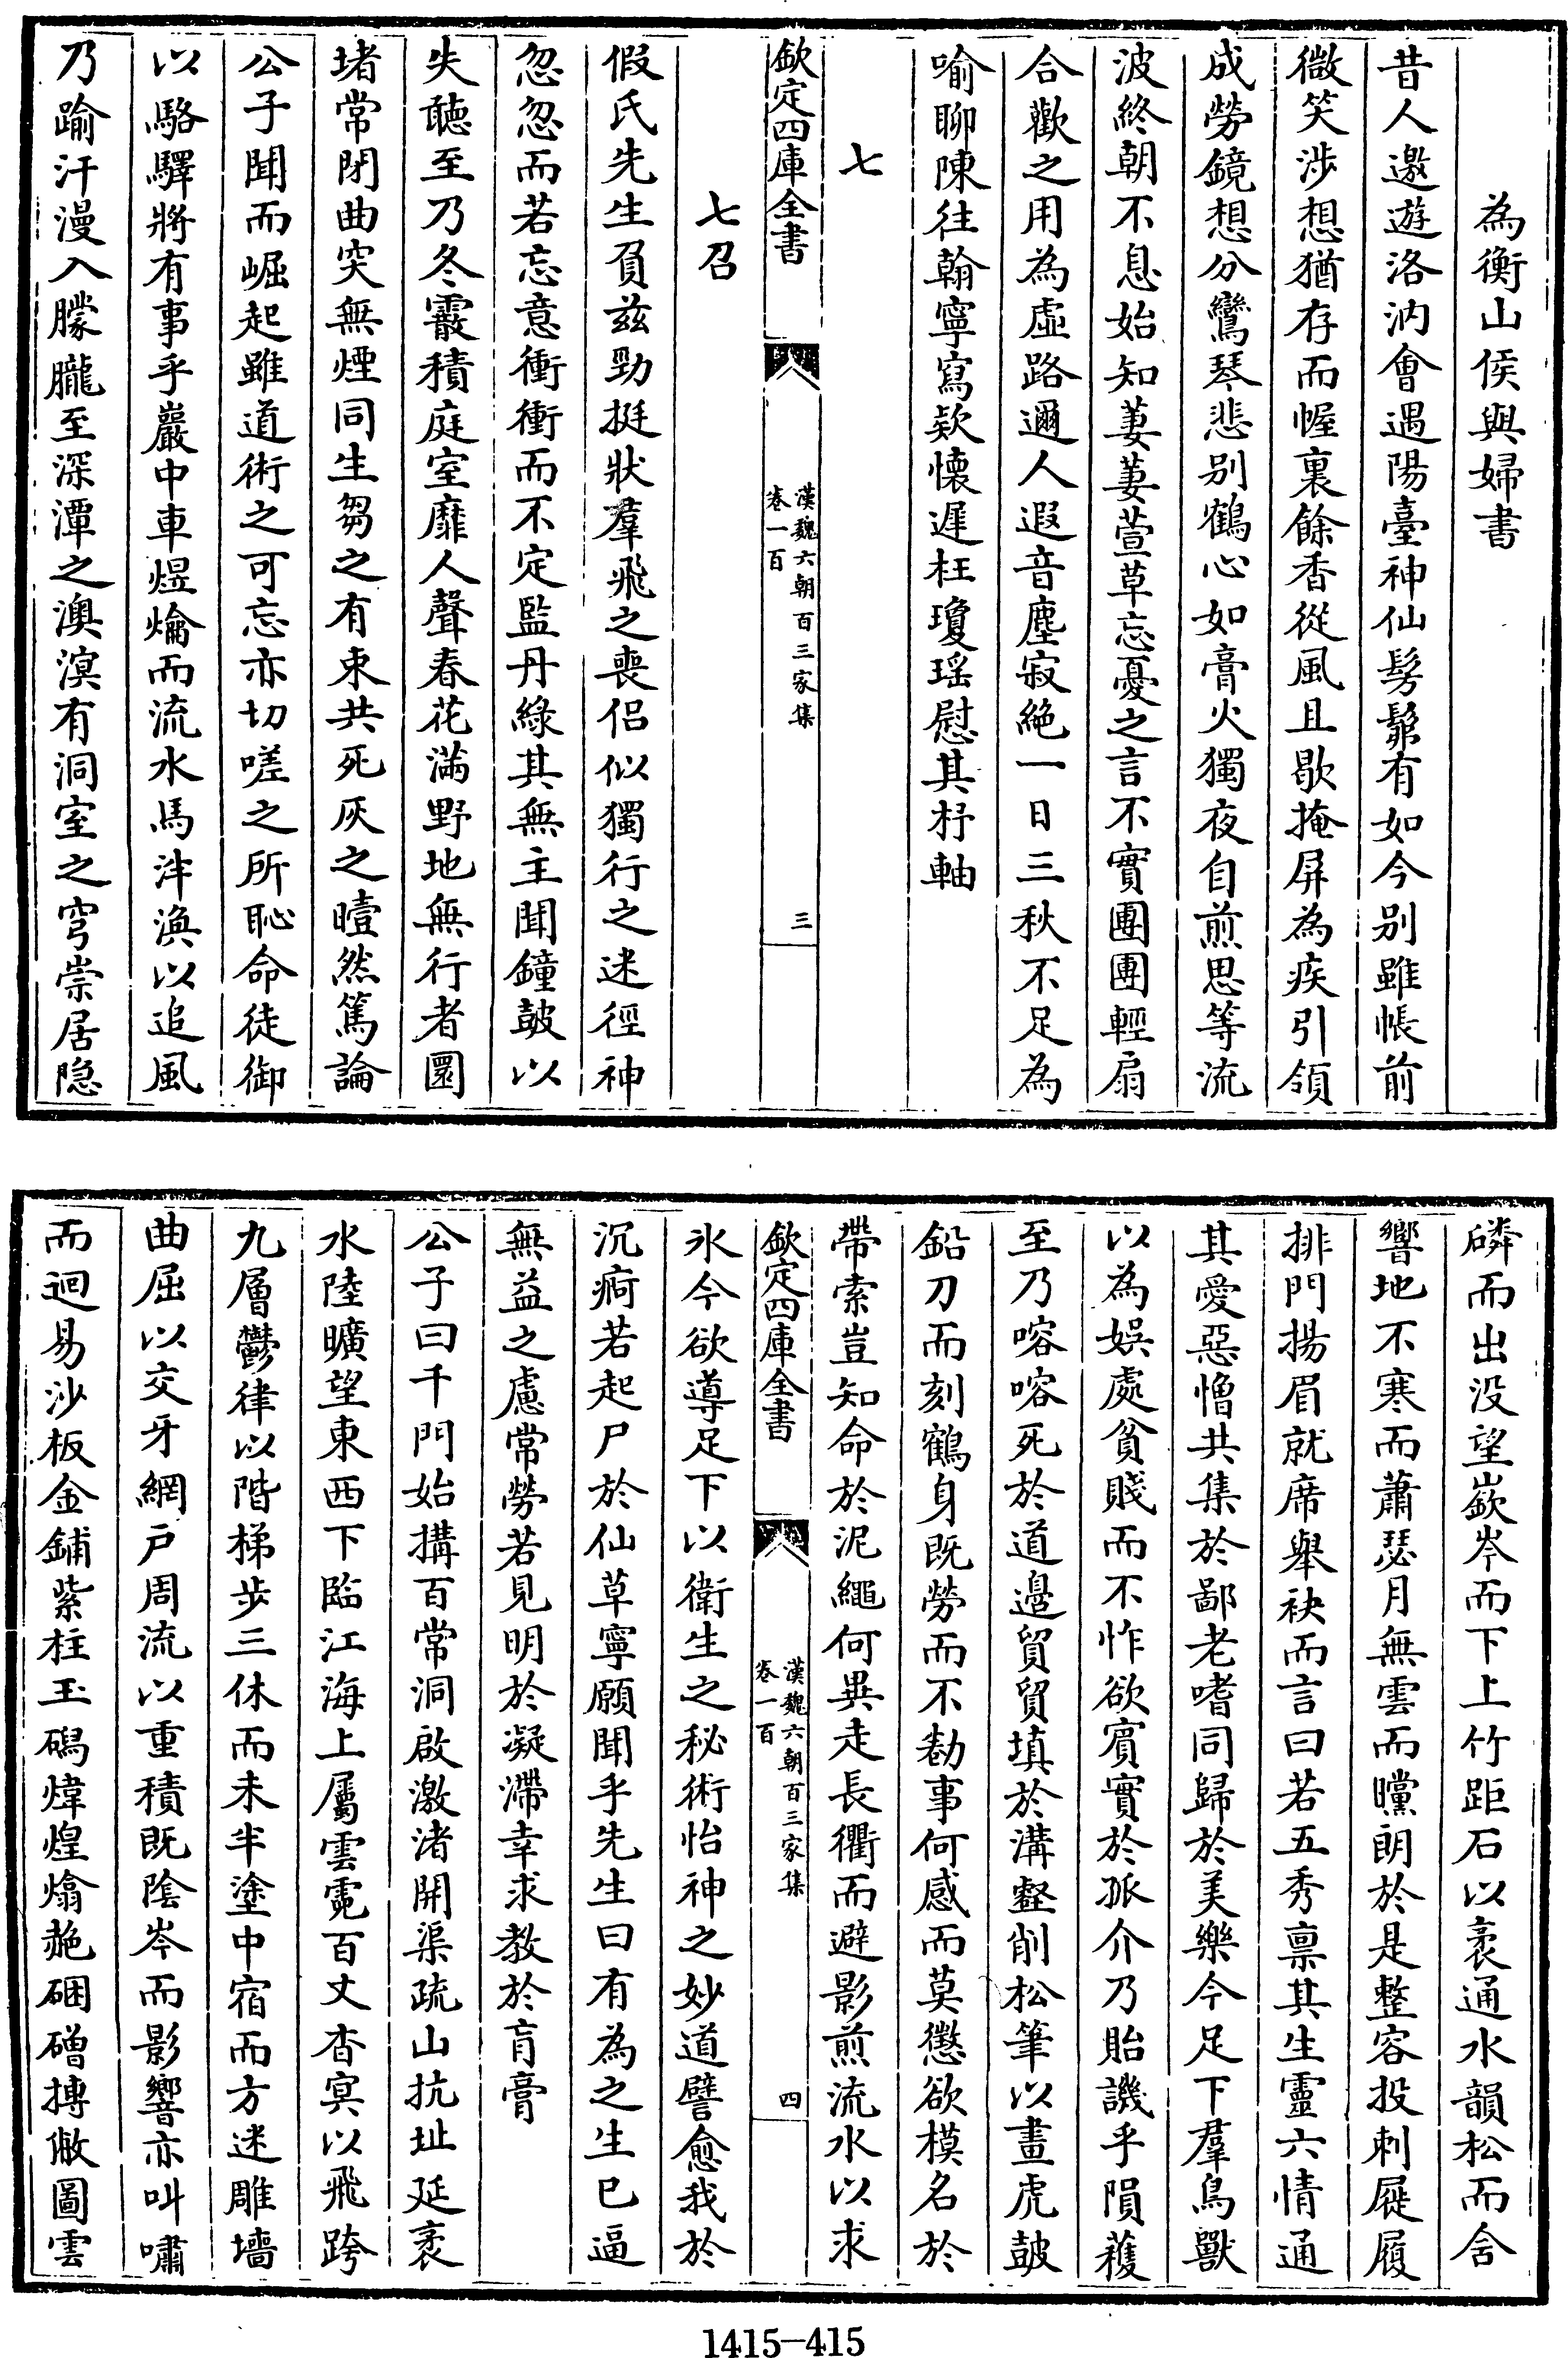 為衡山侯與婦書
昔人邀遊洛汭會遇陽臺神仙髣髴有如今別雖帳前
微笑涉想猶存而幄裏餘香從風且歇掩屏為疾引領
成勞鏡想分鸞琴悲別鶴心如膏火獨夜自煎思等流
波終朝不息始知萋萋萱草忘憂之言不實團團輕扇
合歡之用為虛路邇人遐音塵寂絶一日三秋不足為
喻聊陳往翰寧寫欵懷遲枉瓊瑤慰其杼軸
七
欽定四庫全書
漢魏六朝百三家集
卷一百
三
七召
假氏先生負兹勁挺狀羣飛之喪侣似獨行之迷徑神
忽忽而若忘意衝衝而不定監丹綠其無主聞鐘皷以
失聽至乃冬霰積庭室靡人聲春花滿野地無行者圜
堵常閉曲突無煙同生芻之有束共死灰之曀然篤論
公子聞而崛起雖道術之可忘亦切嗟之所恥命徒御
以駱驛將有事乎巖中車煜爚而流水馬泮渙以追風
乃踰汗漫入朦朧至深潭之澳溟有洞室之穹崇居隐
磷而出没望嶔岑而下上竹距石以袤通水韻松而含
響地不寒而蕭瑟月無雲而曭朗於是整容投刺屣履
排門揚眉就席舉袂而言曰若五秀禀其生靈六情通
其愛惡憎共集於鄙老嗜同歸於美樂今足下羣鳥獸
以為娛處貧賤而不怍欲賓實於孤介乃貽譏乎隕穫
至乃喀喀死於道邊貿貿填於溝壑削松筆以畫虎皷
鉛刀而刻鶴身既勞而不勌事何感而莫懲欲模名於
帶索豈知命於泥繩何異走長衢而避影煎流水以求
欽定四庫全書
漢魏六朝百三家集
卷一百
四
氷今欲導足下以衛生之秘術怡神之妙道譬愈我於
沉痾若起尸於仙草寧願聞乎先生曰有為之生已逼
無益之慮常勞若見明於凝滯幸求教於肓膏
公子曰千門始搆百常洞啟激渚開渠疏山抗址延袤
水陸曠望東西下臨江海上屬雲霓百丈杳冥以飛跨
九層鬱律以階梯步三休而未半塗中宿而方迷雕墻
曲屈以交牙網户周流以重積既陰岑而影響亦叫嘯
而迴易沙板金鋪紫柱玉磶煒煌熻赩硱磳摶敝圖雲
1415-415